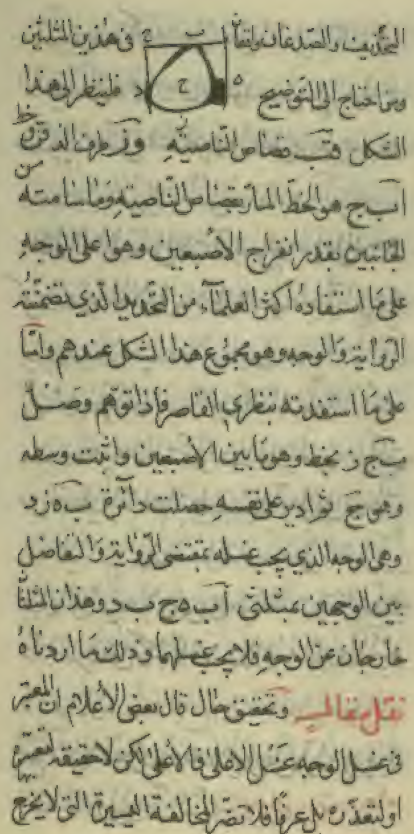 التحذيف والصدغان ولقا ب ج في هذين المثلثين
ومن احتاج الى التوضيح ه ح د فلينظر الى هذا
الشكل فب قصاص الناصية وز طرف الذقن وخط
آب ج هو الخط المار بقصاص الناصية وما سامته من
الجانبين بقدر انفراج الاصبعين وهوا على الوجه
على ما استفاده اكثر العلماء من التحديد الذي تضمنته
الرواية والوجه وهو مجموع هذا الشكل عندهم واما
على ما استفدته بنظري القاصر فاذا توهم وصل
ب ح ز بخط وهو ما بين الاصبعين واثبت وسطه
وهو ح ثم ادير على نفسه حصلت دائرة ب ه ز د
وهي الوجه الذي يجب غسله بمقتضى الرواية والتفاضل
بين الوجهين بمثلثي آب ه ج ب د وهذان المثلثا
خارجان عن الوجه فلا يجب غسلهما وذلك ما اردناه
نقل مقال وتحقيق حال قال بعض الأعلام ان المعتبر
في غسل الوجه غسل الاعلى فالأعلى لكن لا حقيقة لتعسره
اولتعذره بل عرفا فلا تضر المخالفة اليسيرة التي لا يخرج
بها